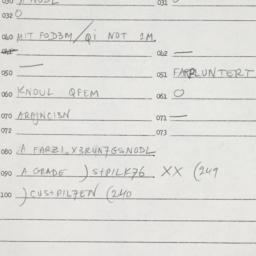 030 A NODL 031 0
032 0
040 HIT FOD3M/QI NOT 2M. 042 —
050 — 051 FARLUNTERT
060 KNOUL QFEM 061 0
070 ARAJNCI3N 071 —
072 073
080 A FARZI.X3RUN7GSNODL
090 A GRADE )S+PILK76 XX (249
100 )CUS+PIL7EN (240